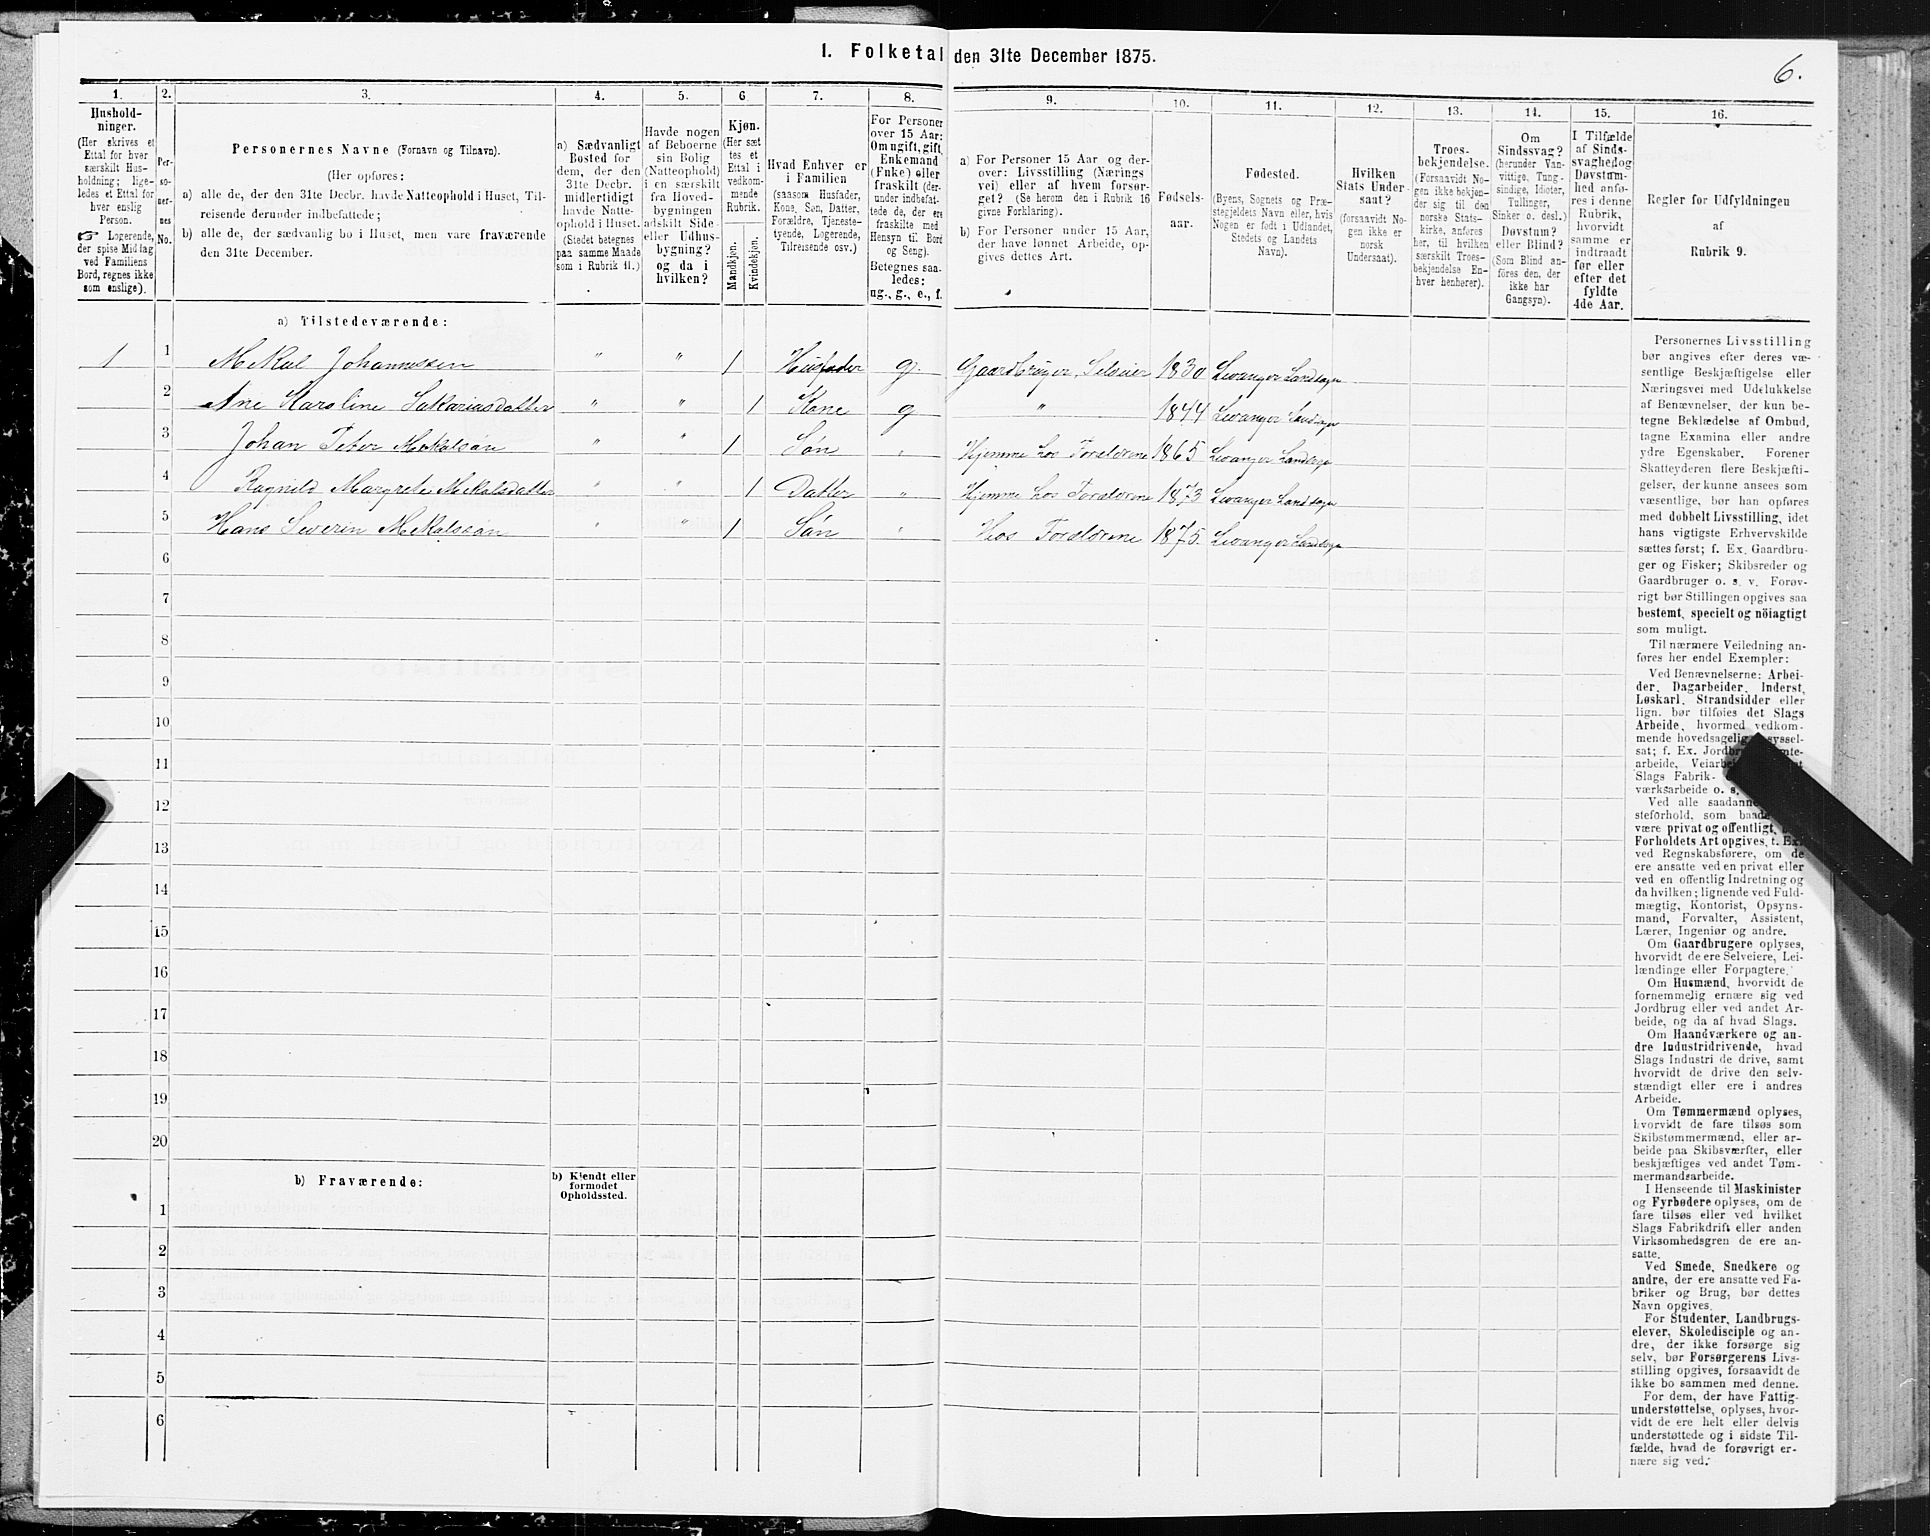 1. Folketal den 31te December 1875.
6.
1.
2.
3.
4.
5.
6
7.
8.
9.
10.
11.
12.
13.
14.
15.
16.
Hushold-
ninger.
(Her skrives et
Ettal for hver
særskilt Hus-
holdning; lige-
ledes et Ettal
for hver enslig
Person.
☞ Logerende,
der spise Middag
ved Familiens
Bord, regnes ikke
som enslige).
Per-
so-
ner-
nes
No.
Personernes Navne (Fornavn og Tilnavn).
(Her opføres:
a) alle de, der den 31te Decbr. havde Natteophold i Huset, Til-
reisende derunder indbefattede;
b) alle de, der sædvanlig bo i Huset, men vare fraværende
den 31te December.
a) Sædvanligt
Bosted for
dem, der den
31te Decbr.
midlertidigt
havde Natte-
ophold i Huset.
(Stedet betegnes
paa samme Maade
som i Rubrik 11.)
Havde nogen
af Beboerne
sin Bolig
(Natteophold)
i en særskilt
fra Hoved-
bygningen
adskilt Side-
eller Udhus-
bygning?
og da i
hvilken?
Kjøn.
(Her sæt
tes et
Ettal i
vedkom-
mende
Rubrik.
Mandkjøn.
Kvindekjøn.
Hvad Enhver er
i Familien
(saasom Husfader,
Kone, Søn, Datter,
Forældre, Tjeneste-
tyende, Logerende,
Tilreisende osv.)
For Personer
over 15 Aar:
Om ugift, gift,
Enkemand
(Enke) eller
fraskilt (der-
under indbefat-
tede de, der ere
fraskilte med
Hensyn til Bord
og Seng).
Betegnes saa-
ledes:
ug., g., e., f.
a) For Personer 15 Aar og der-
over: Livsstilling (Nærings
vei) eller af hvem forsør-
get? (Se herom den i Rubrik 16
givne Forklaring).
b) For Personer under 15 Aar,
der have lønnet Arbeide, op-
gives dettes Art.
Fødsels-
aar.
Fødested.
(Byens, Sognets og Præ-
stegjeldets Navn eller, hvis
Nogen er født i Udlandet,
Stedets og Landets
Navn).
Hvilken
Stats Under-
saat?
(forsaavidt No-
gen ikke er
norsk
Undersaat).
Troes-
bekjendelse.
(Forsaavidt No-
gen ikke bekjen-
der sig til den
norske Stats-
kirke, anføres
her, til hvilken
særskilt Troes-
bekjendelse En-
hver henhører).
Om
Sindssvag?
(herunder Van-
vittige, Tung-
sindige, Idioter,
Tullinger,
Sinker o. desl.)
Døvstum?
eller Blind?
(Som Blind an-
føres den, der
ikke har
Gangsyn).
I Tilfælde
af Sinds-
svaghed og
Døvstum-
hed anfø-
res i denne
Rubrik,
hvorvidt
samme er
indtraadt
før eller
efter det
fyldte
4de Aar.
Regler for Udfyldningen
af
Rubrik 9.
a) Tilstedeværende:
1 1 Mekal Johannessen " " 1 Husfader g. Gaardbruger, Selveier 1830 Levanger Landsogn
2 Ane Karoline Sakariasdatter " " 1 Kone g " 1844 Levanger Landsogn
3 Johan Peter Mekalsøn " " 1 Søn " Hjemme hos Foreldrene 1865 Levanger Landsogn
4 Ragnild Margrete Mekalsdatter " " 1 Datter " Hjemme hos Foreldrene 1873 Levanger Landsogn
5 Hans Severin Mekalssøn " " 1 Søn " Hos Foreldrene 1875. Levanger Landsogn
6
7
8
9
10
11
12
13
14
15
16
17
18
19
20
b) Fraværende:
b) Kjendt eller
formodet
Opholdssted.
1
2
3
4
5
6
Personernes Livsstilling
bør angives efter deres væ-
sentlige Beskjæftigelse eller
Næringsvei med Udelukkelse
af Benævnelser, der kun be-
tegne Beklædelse af Ombud,
tagne Examina eller andre
ydre Egenskaber. Forener
Skatteyderen flere Beskjæfti-
gelser, der kunne ansees som
væsentlige, bør han opføres
med dobbelt Livsstilling, idet
hans vigtigste Erhvervskilde
sættes først; f. Ex. Gaardbru-
ger og Fisker; Skibsreder og
Gaardbruger o. s. v. Forøv-
rigt bør Stillingen opgives saa
bestemt, specielt og nöiagtigt
som muligt.
Til nærmere Veiledning an-
føres her endel Exempler:
Ved Benævnelserne: Arbei-
der, Dagarbeider, Inderst,
Løskarl, Strandsidder eller
lign. bør tilføies det Slags
Arbeide, hvormed vedkom-
mende hovedsagelig syssel-
sat; f. Ex. Jordbr
arbeide, Veiarbe
Slags Fabrik-
værksarbeide o. s.
Ved alle saadanne
steforhold, som baade
være privat og offentligt,
Forholdets Art opgives, f. Ex.
ved Regnskabsførere, om de
ere ansatte ved en privat eller
ved en offentlig Indretning og
da hvilken; lignende ved Fuld-
mægtig, Kontorist, Opsyns-
mand, Forvalter, Assistent,
Lærer, Ingeniør og andre.
Om Gaardbrugere oplyses,
hvorvidt de ere Selveiere, Lei-
lændinge eller Forpagtere.
Om Husmænd, hvorvidt de
fornemmelig ernære sig ved
Jordbrug eller ved andet Ar-
beide, og da af hvad Slags.
Om Haandværkere og an-
dre Industridrivende, hvad
Slags Industri de drive, samt
hvorvidt de drive den selv-
stændigt eller ere i andres
Arbeide.
Om Tømmermænd oplyses,
hvorvidt de fare tilsøs som
Skibstømmermænd, eller ar-
beide paa Skibsværfter, eller
beskjæftiges ved andet Tøm-
mermandsarbeide.
I Henseende til Maskinister
og Fyrbødere oplyses, om de
fare tilsøs eller ved hvilket
Slags Fabrikdrift eller anden
Virksomhedsgren de ere an-
satte.
Ved Smede, Snedkere og
andre, der ere ansatte ved Fa-
briker og Brug, bør dettes
Navn opgives.
For Studenter, Landbrugs-
elever, Skoledisciple og an-
dre, der ikke forsørge sig
selv, bør Forsørgerens Livs-
stilling opgives, forsaavidt de
ikke bo sammen med denne.
For dem, der have Fattig-
understøttelse, oplyses, hvor-
vidt de ere helt eller delvis
understøttede og i sidste Til-
fælde, hvad de forøvrigt er-
nære sig ved.